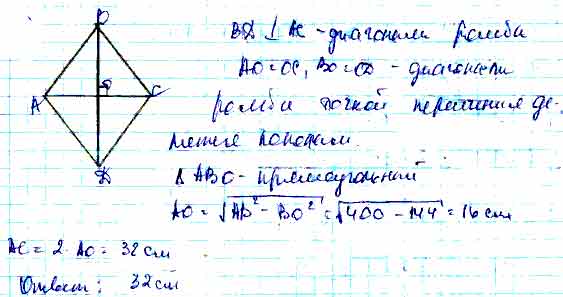 B
BD ⊥ AC - диагонали ромба
AO = OC, BO = OD - диагонали
ромба точкой пересечения де-
лятся пополам.
A
O
C
D
Δ ABO - прямоугольный
AO = √AB² - BO² = √400 - 144 = 16 см
AC = 2 · AO = 32 см
Ответ: 32 см